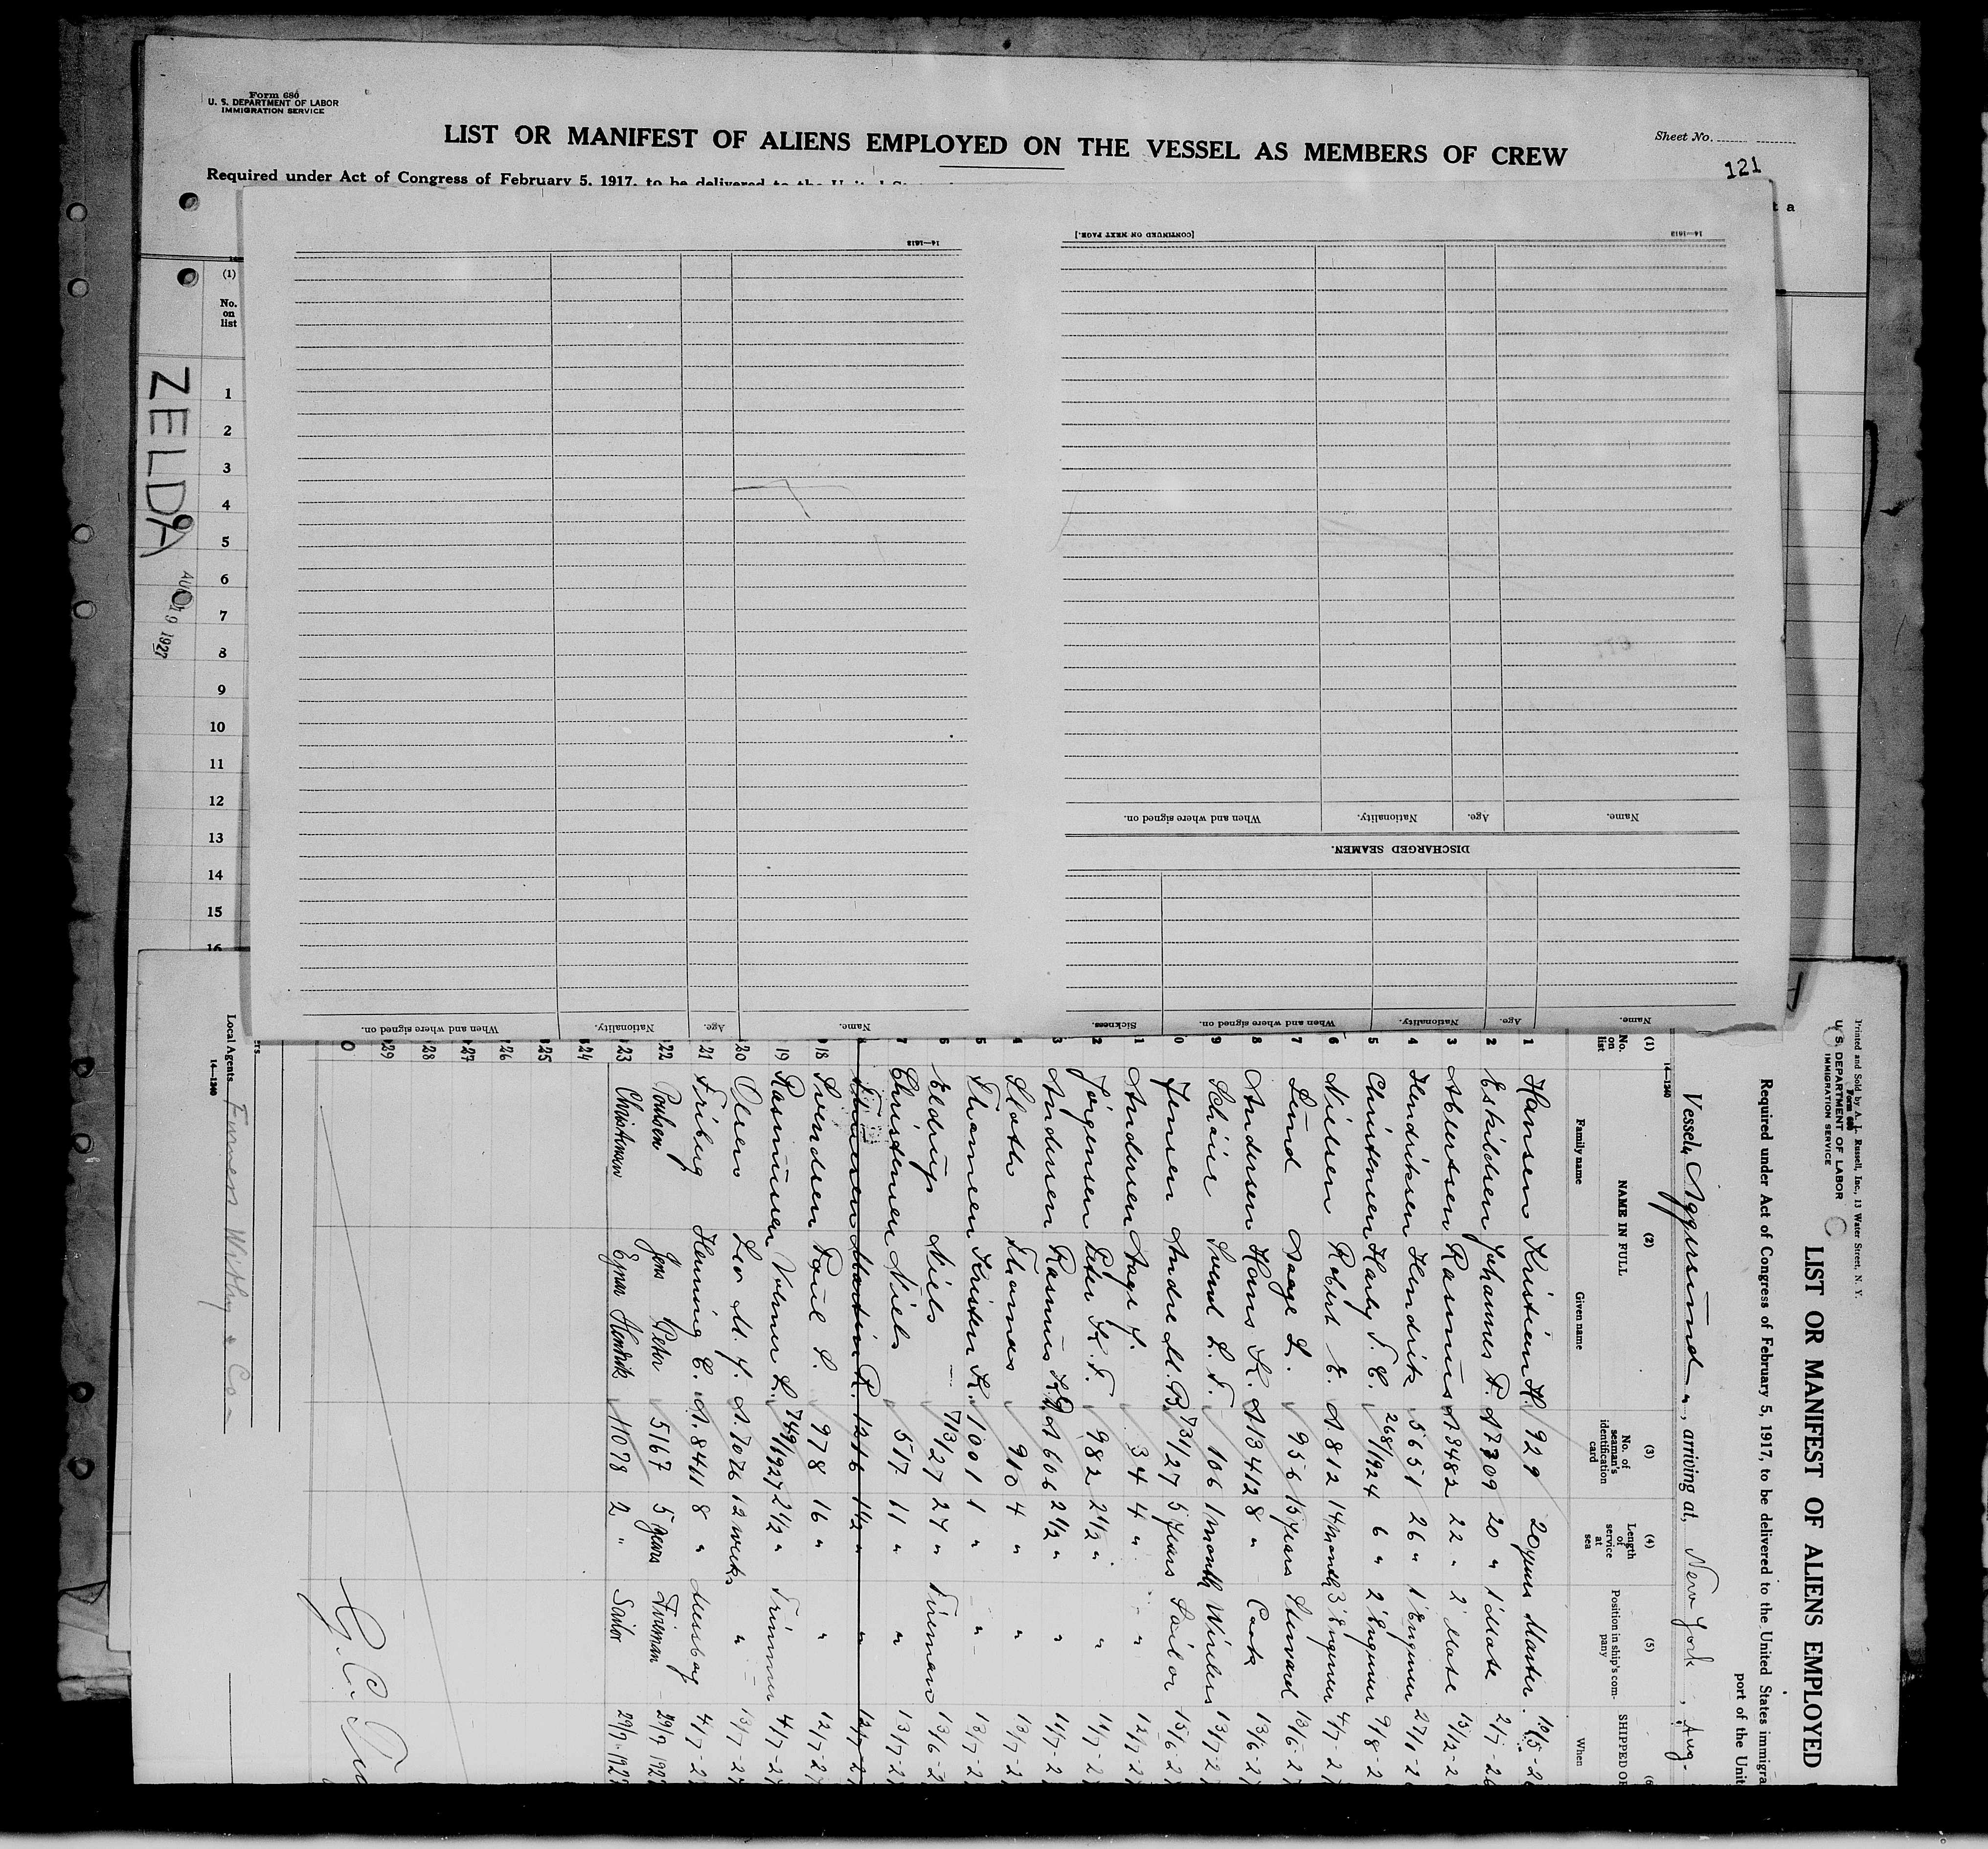 Form 680
U. S. DEPARTMENT OF LABOR
IMMIGRATION SERVICE
LIST OR MANIFEST OF ALIENS EMPLOYED ON THE VESSEL AS MEMBERS OF CREW
Sheet No.
121
Required under Act of Congress of February 5, 1917, to be delivered to the United
a
(1)
No.
on
list
1
2
3
4
5
6
7
8
9
10
11
12
13
14
15
16
ZELDA
AUG 19 1927
14—1613
[CONTINUED ON NEXT PAGE.]
14—1613
Name.
Age.
Nationality.
When and where signed on.
DISCHARGED SEAMEN.
Name.
Age.
Nationality.
When and where signed on.
Sickness.
Name.
Age.
Nationality.
When and where signed on.
Printed and Sold by A. L. Russell, Inc., 13 Water Street, N. Y.
Form 680
U. S. DEPARTMENT OF LABOR
IMMIGRATION SERVICE
LIST OR MANIFEST OF ALIENS EMPLOYED
Required under Act of Congress of February 5, 1917, to be delivered to the United States immigra
port of the Unit
Vessel "Aggersund", arriving at New York, Aug.
14—1240
(1) (2) (3) (4) (5) (6
No. on list NAME IN FULL No. of seaman's identification card Length of service at sea Position in ship's company SHIPPED OR
Family name Given name When
1 Hansen Kristian H. 929 20 years Master 10/5-2
2 Eskildsen Johannes F. A7309 20 " 1 Mate 2/7-26
3 Albertsen Rasmus A8482 22 " 2 Mate 15/12-2
4 Hendriksen Hendrik 5651 26 " 1 Engineer 27/1-2
5 Christensen Harly F. E. 268/1924 6 " 2 Engineer 9/8-2
6 Nielsen Robert E. A.812 14 month 3 Engineer 4/7-2
7 Lund Aage L. 956 15 years Steward 13/6-27
8 Andersen Hans K. A13412 8 " Cook 13/6-27
9 Svend L. F. 106 1 month Wireless 13/7-2
0 Jensen Andre M. B. 731/27 5 years Sailor 15/6-2
1 Andersen Aage J. 34 4 " " 12/7-2
2 Jörgensen Peter K. F. 982 2 1/2 " " 14/7-2
3 Andersen Rasmus A606 2 1/2 " " 14/7-2
4 Sloth Thomas 910 4 " " 13/7-2
5 Thomsen Kristen K. 1001 1 " " 13/7-2
6 Eldrup Niels 713/27 27 " Fireman 13/6-2
7 Christensen Niels 517 11 " " 13/7-2
8 Martin R. 1216 1 1/2 " " 12/7-2
18 Svendsen Poul S. 978 16 " " 12/7-2
19 Rasmussen Volmer L. 749/1927 2 1/2 " Trimmer 4/7-2
20 Olsen Leo M. J. A.7076 12 weeks " 13/7-2
21 Friberg Henning C. A.8411 8 " Messboy 4/7-2
22 Poulsen Jens Peter 5167 5 years Fireman 29/7 192
23 Christensen Ejnar Hendrik 11078 2 " Sailor 29/7-192
24
25
26
27
28
29
0
Local Agents Furness Withy & Co
14—1240